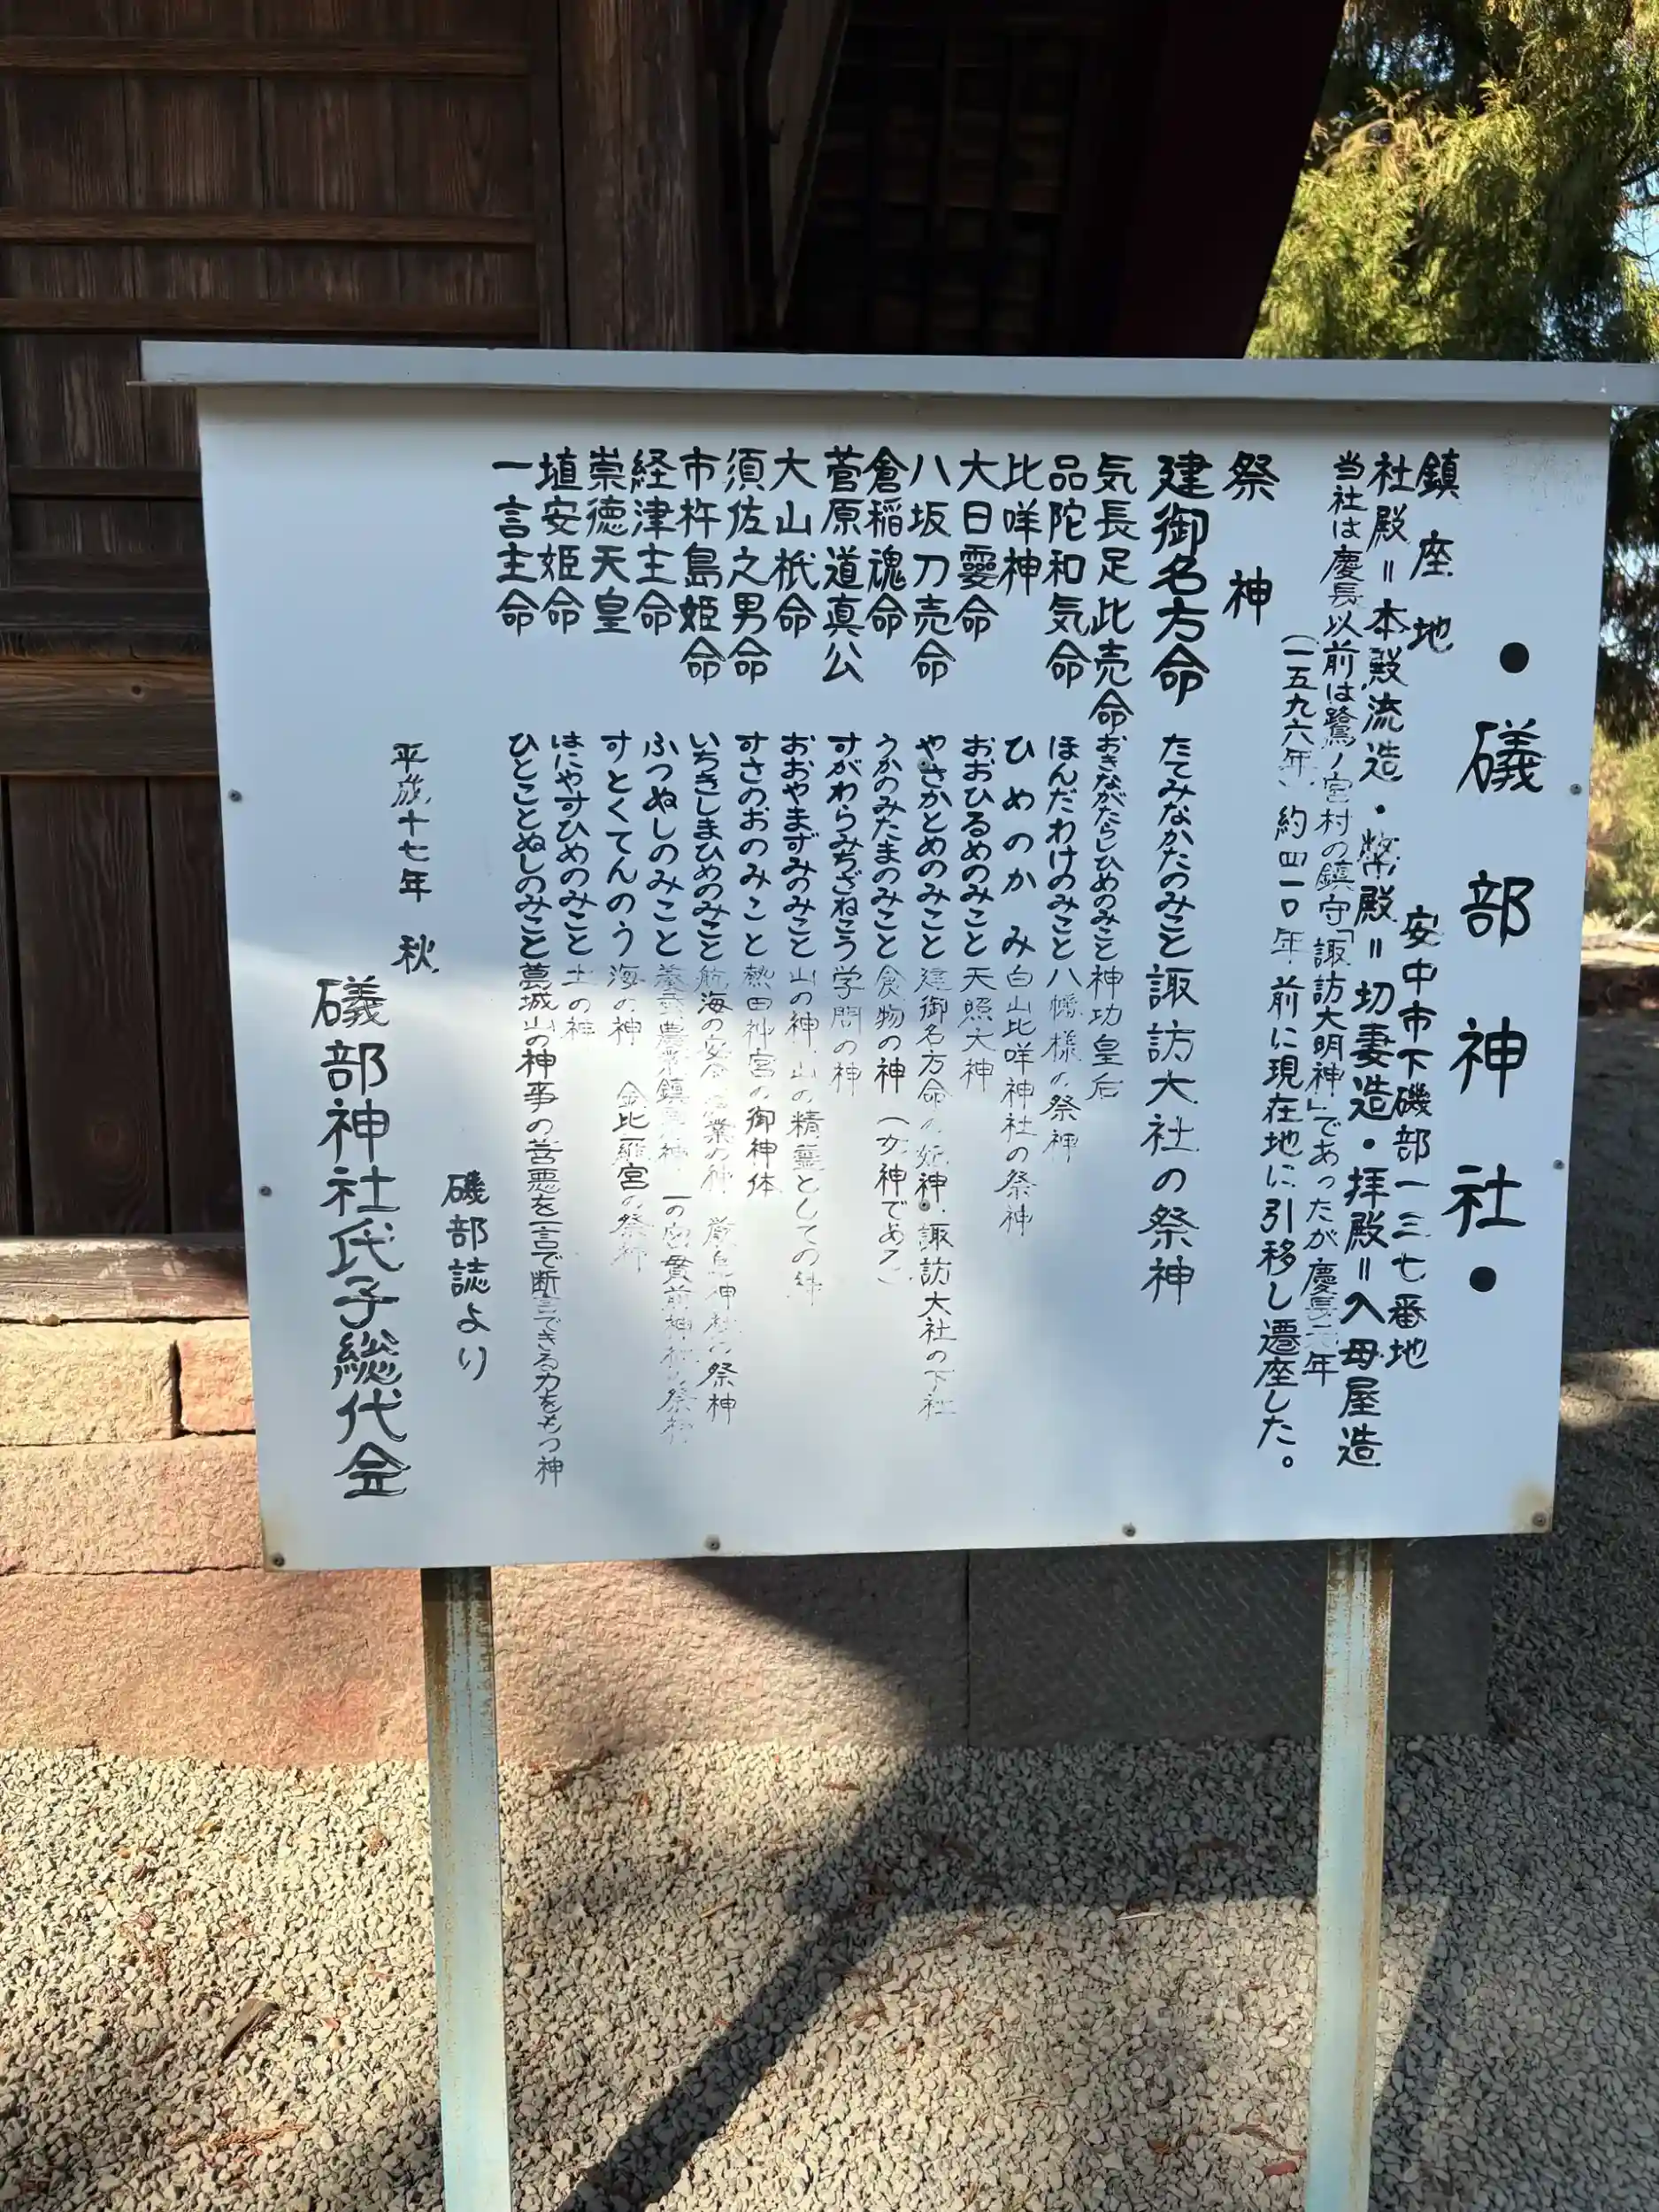 ・磯部神社・
鎮座地　安中市下磯部一三七番地
社殿＝本殿流造・幣殿＝切妻造・拝殿＝入母屋造
当社は慶長以前は鷺ノ宮村の鎮守「諏訪大明神」であったが慶長元年
（一五九六年）約四一〇年前に現在地に引移し遷座した。
祭神
建御名方命　たてみなかたのみこと　諏訪大社の祭神
気長足比売命　おきながたらしひめのみこと　神功皇后
品陀和気命　ほんだわけのみこと　八幡様の祭神
比咩神　ひめのかみ　白山比咩神社の祭神
大日靈命　おおひるめのみこと　天照大神
八坂刀売命　やさかとめのみこと　建御名方命の妃神・諏訪大社の下社
倉稲魂命　うかのみたまのみこと　食物の神（女神である）
菅原道真公　すがわらみちざねこう　学問の神
大山祇命　おおやまずみのみこと　山の神、山の精霊としての神
須佐之男命　すさのおのみこと　熱田神宮の御神体
市杵島姫命　いちきしまひめのみこと　航海の安全　業の神　厳島神社の祭神
経津主命　ふつぬしのみこと　農業　一の宮貫前神社の祭神
崇徳天皇　すとくてんのう　海の神　金比羅宮の祭神
埴安姫命　はにやすひめのみこと　土の神
一言主命　ひとことぬしのみこと　葛城山の神事の善悪を一言で断言できる力をもつ神
磯部誌より
平成十七年　秋
礒部神社氏子総代会